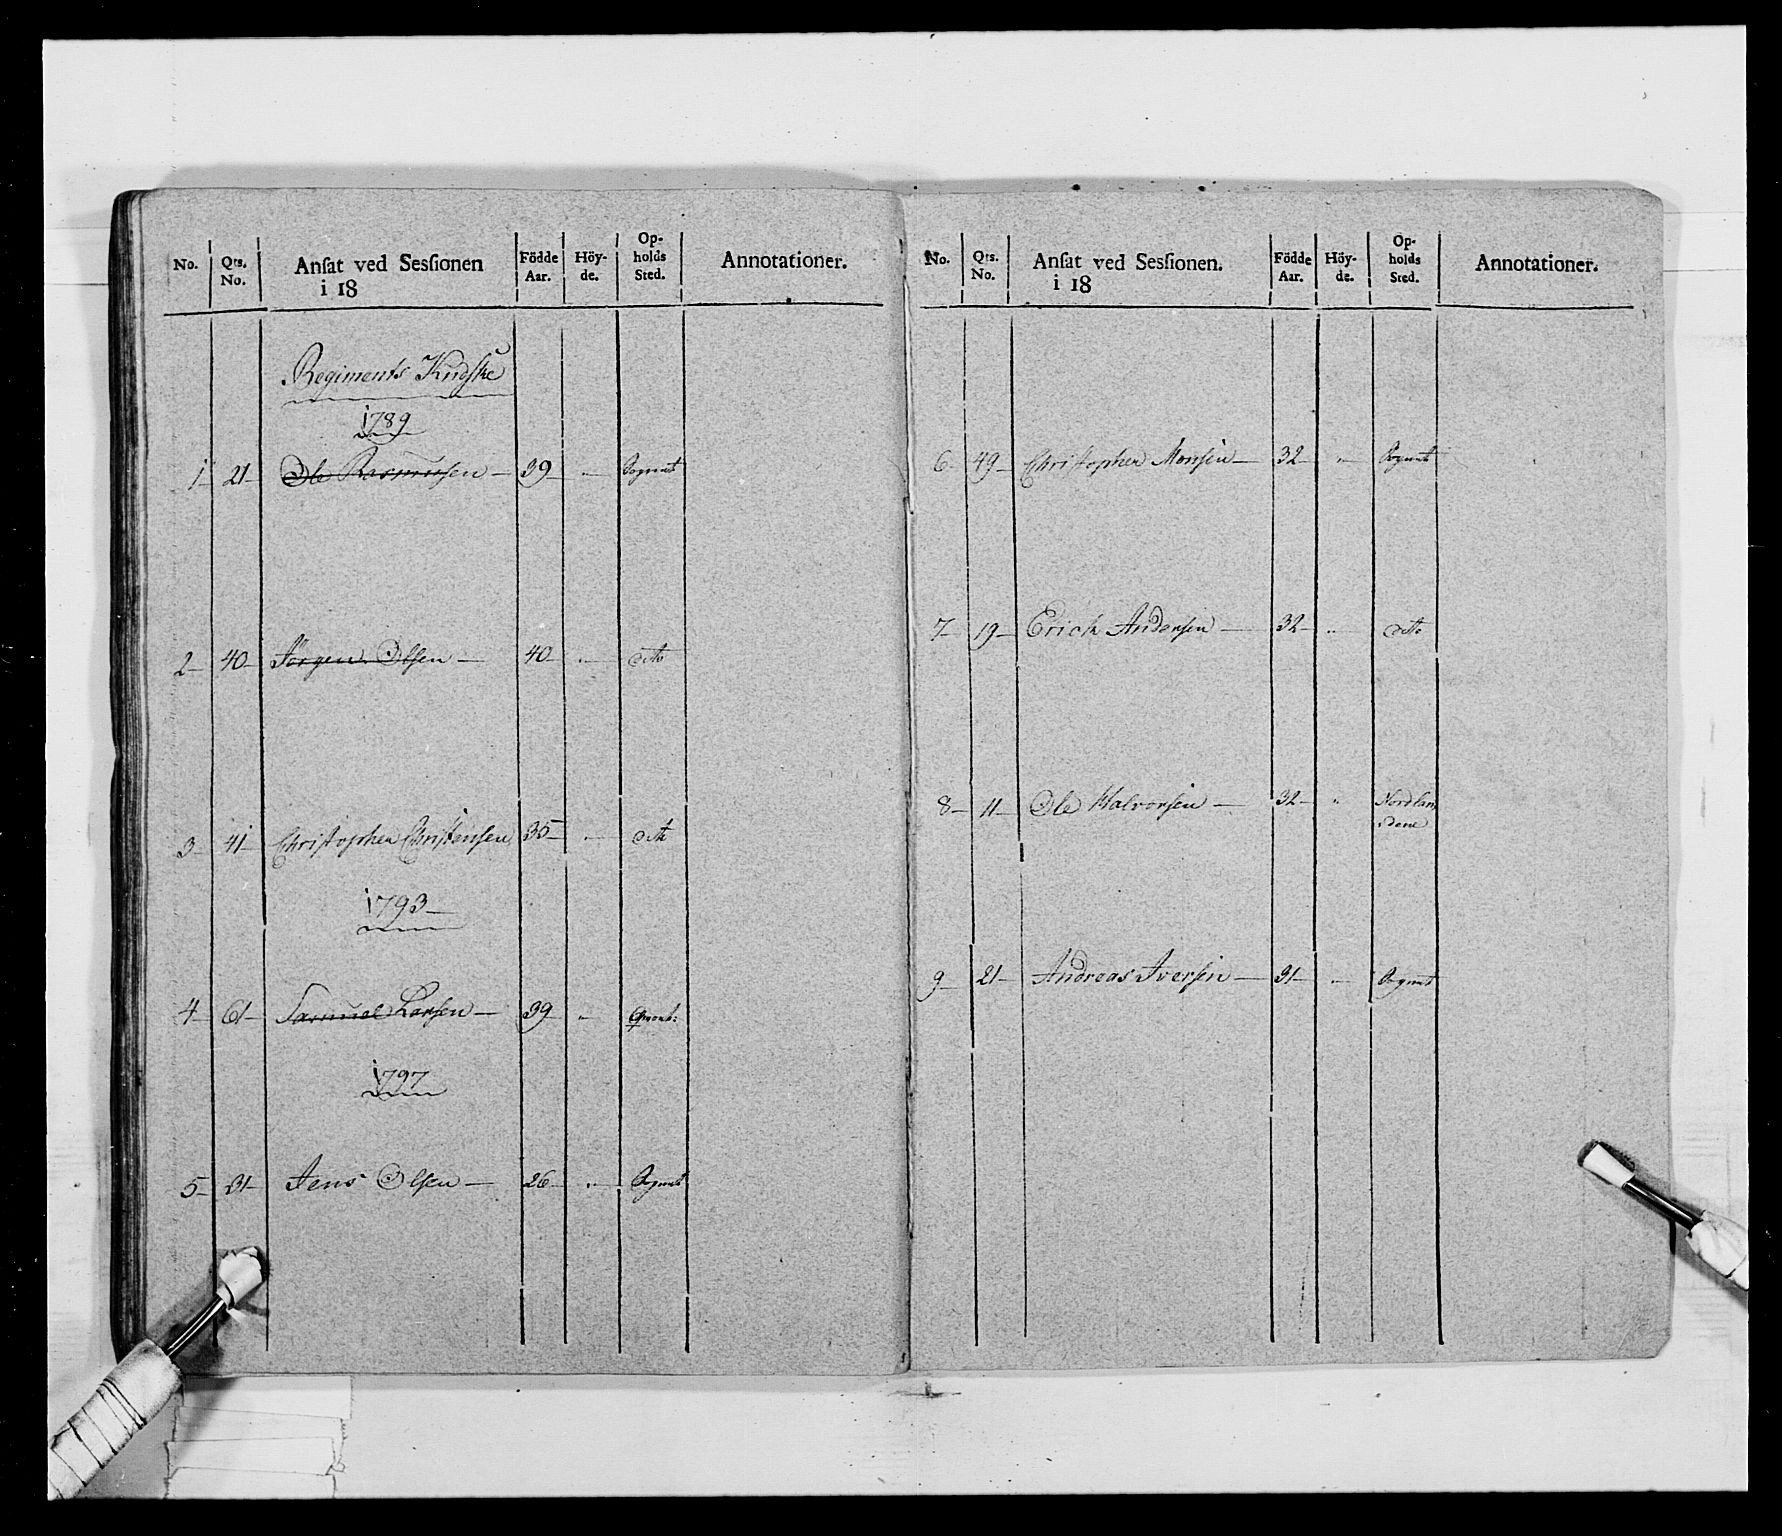 No. Qts. No. Ansat ved Sessionen i 18 Födde Aar. Höyde. Opholds Sted. Annotationer.
Regiments Kudske
1789
1 21 Ole Rasmussen 39 " Regmt
2 40 Jörgen Olsen 40 " ditto
3 41 Christopher Christensen 35 " ditto
1793
4 61 Samuel Larsen 39 "
1797
5 31 Jens Olsen 26 " Regmt
No. Qts. No. Ansat ved Sessionen. i 18 Födde Aar. Höyde. Opholds Sted. Annotationer.
6 49 Christopher Monsen 32 " Regmt
7 19 Erich Andersen 32 " ditto
8 11 Ole Halvorsen 32 " Nordlandene
9 21 Andreas Iversen 31 " Regmt